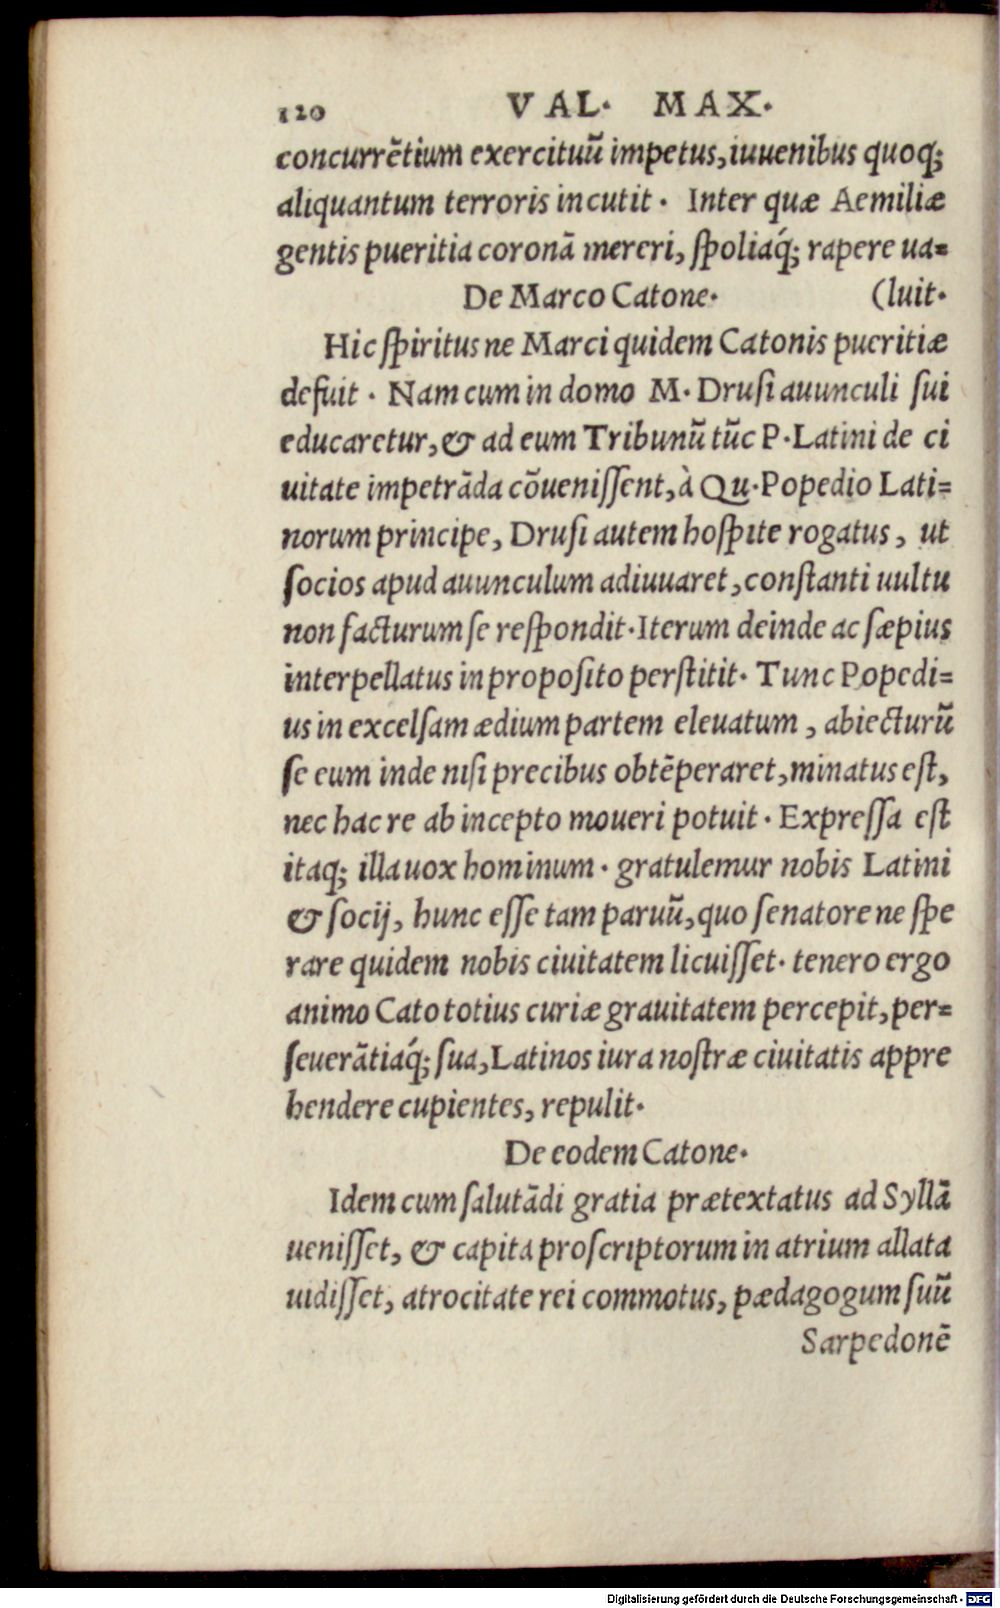 120 VAL. MAX.
concurrētium exercituū impetus, iuuenibus quoq;
aliquantum terroris incutit. Inter quæ Aemiliæ
gentis pueritia coronā mereri, ſpoliaq́; rapere ua=
De Marco Catone. (luit.
Hic ſpiritus ne Marci quidem Catonis pueritiæ
defuit. Nam cum in domo M. Druſi auunculi ſui
educaretur, & ad eum Tribunū tūc P. Latini de ci
uitate impetrāda cōueniſſent, à Qu. Popedio Lati=
norum principe, Druſi autem hoſpite rogatus, ut
ſocios apud auunculum adiuuaret, conſtanti uultu
non facturum ſe reſpondit. Iterum deinde ac ſæpius
interpellatus in propoſito perſtitit. Tunc Popedi=
us in excelſam ædium partem eleuatum, abiecturū
ſe eum inde niſi precibus obtēperaret, minatus eſt,
nec hac re ab incepto moueri potuit. Expreſſa eſt
itaq; illa uox hominum. gratulemur nobis Latini
& ſocij, hunc eſſe tam paruū, quo ſenatore ne ſpe
rare quidem nobis ciuitatem licuiſſet. tenero ergo
animo Cato totius curiæ grauitatem percepit, per=
ſeuerātiaq́; ſua, Latinos iura noſtræ ciuitatis appre
hendere cupientes, repulit.
De eodem Catone.
Idem cum ſalutādi gratia prætextatus ad Syllā
ueniſſet, & capita proſcriptorum in atrium allata
uidiſſet, atrocitate rei commotus, pædagogum ſuū
Sarpedonē
Digitalisierung gefördert durch die Deutsche Forschungsgemeinschaft - DFG